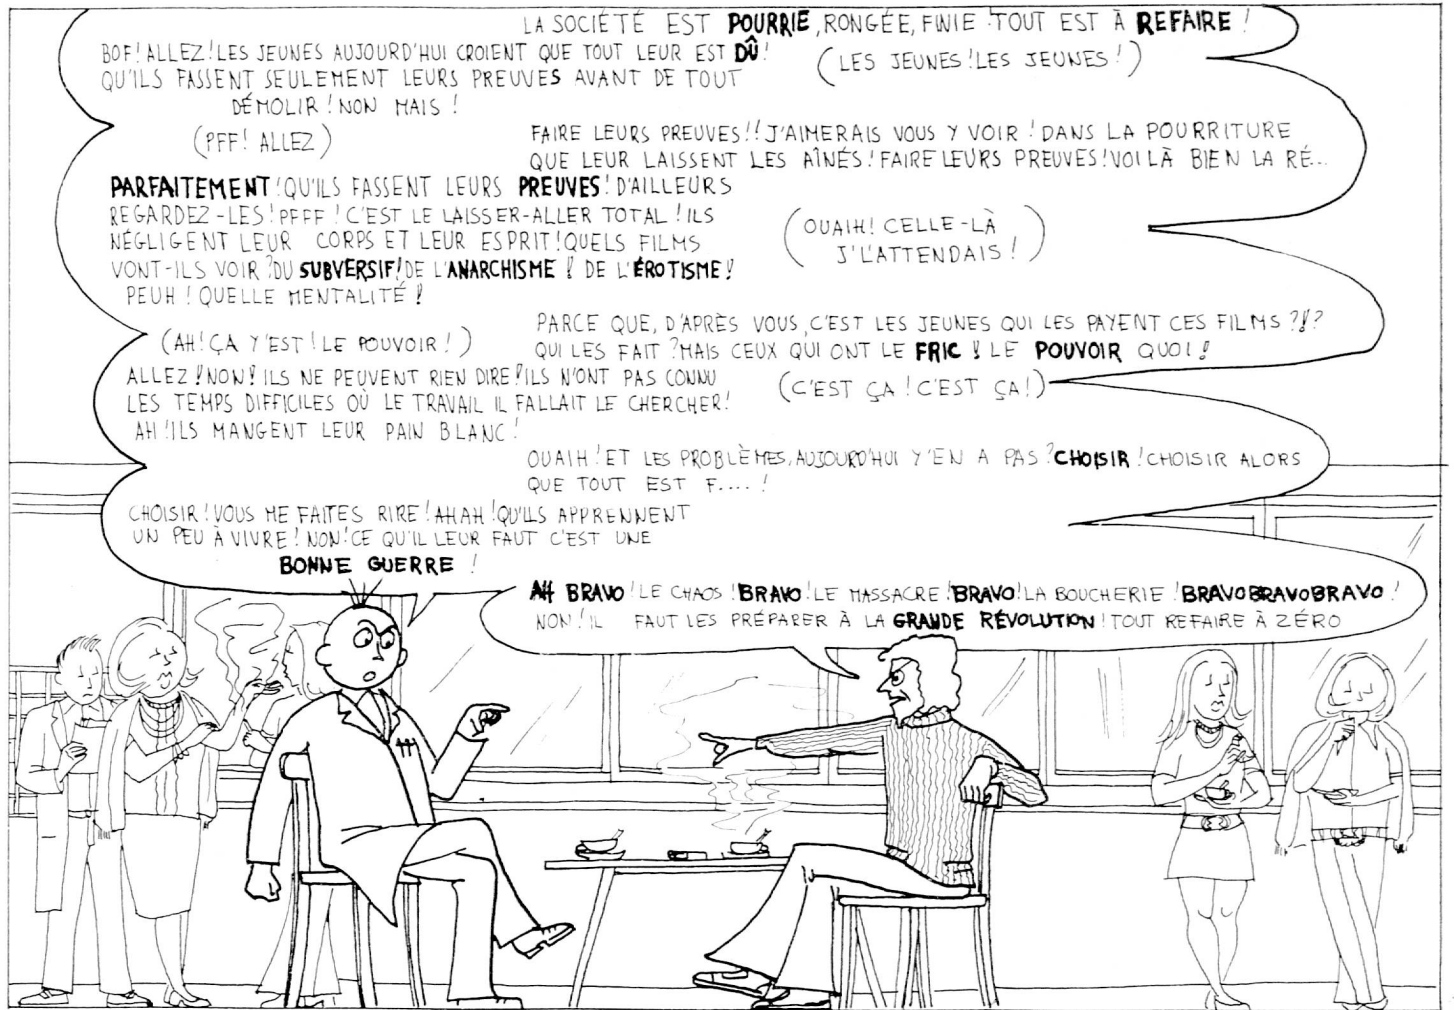 LA SOCIÉTÉ EST POURRIE, RONGÉE, FINIE. TOUT EST À REFAIRE !
BOF! ALLEZ! LES JEUNES AUJOURD'HUI CROIENT QUE TOUT LEUR EST DÛ!
QU'ILS FASSENT SEULEMENT LEURS PREUVES AVANT DE TOUT
DÉMOLIR! NON MAIS!
(LES JEUNES! LES JEUNES!)
(PFF! ALLEZ)
FAIRE LEURS PREUVES!! J'AIMERAIS VOUS Y VOIR! DANS LA POURRITURE
QUE LEUR LAISSENT LES AÎNÉS! FAIRE LEURS PREUVES! VOILÀ BIEN LA RÉ...
PARFAITEMENT! QU'ILS FASSENT LEURS PREUVES! D'AILLEURS
REGARDEZ-LES! PFFF! C'EST LE LAISSER-ALLER TOTAL! ILS
NÉGLIGENT LEUR CORPS ET LEUR ESPRIT! QUELS FILMS
VONT-ILS VOIR? DU SUBVERSIF! DE L'ANARCHISME! DE L'ÉROTISME!
PEUH! QUELLE MENTALITÉ!
(OUAIH! CELLE-LÀ
J'L'ATTENDAIS!)
(AH! ÇA Y'EST! LE POUVOIR!)
PARCE QUE, D'APRÈS VOUS, C'EST LES JEUNES QUI LES PAYENT CES FILMS?!?
QUI LES FAIT? MAIS CEUX QUI ONT LE FRIC! LE POUVOIR QUOI!
ALLEZ! NON! ILS NE PEUVENT RIEN DIRE! ILS N'ONT PAS CONNU
LES TEMPS DIFFICILES OÙ LE TRAVAIL IL FALLAIT LE CHERCHER!
AH! ILS MANGENT LEUR PAIN BLANC!
(C'EST ÇA! C'EST ÇA!)
OUAIH! ET LES PROBLÈMES, AUJOURD'HUI Y'EN A PAS? CHOISIR! CHOISIR ALORS
QUE TOUT EST F....!
CHOISIR! VOUS ME FAITES RIRE! AHAH! QU'ILS APPRENNENT
UN PEU À VIVRE! NON! CE QU'IL LEUR FAUT C'EST UNE
BONNE GUERRE!
AH BRAVO! LE CHAOS! BRAVO! LE MASSACRE! BRAVO! LA BOUCHERIE! BRAVOBRAVOBRAVO!
NON! IL FAUT LES PRÉPARER À LA GRANDE RÉVOLUTION! TOUT REFAIRE À ZÉRO